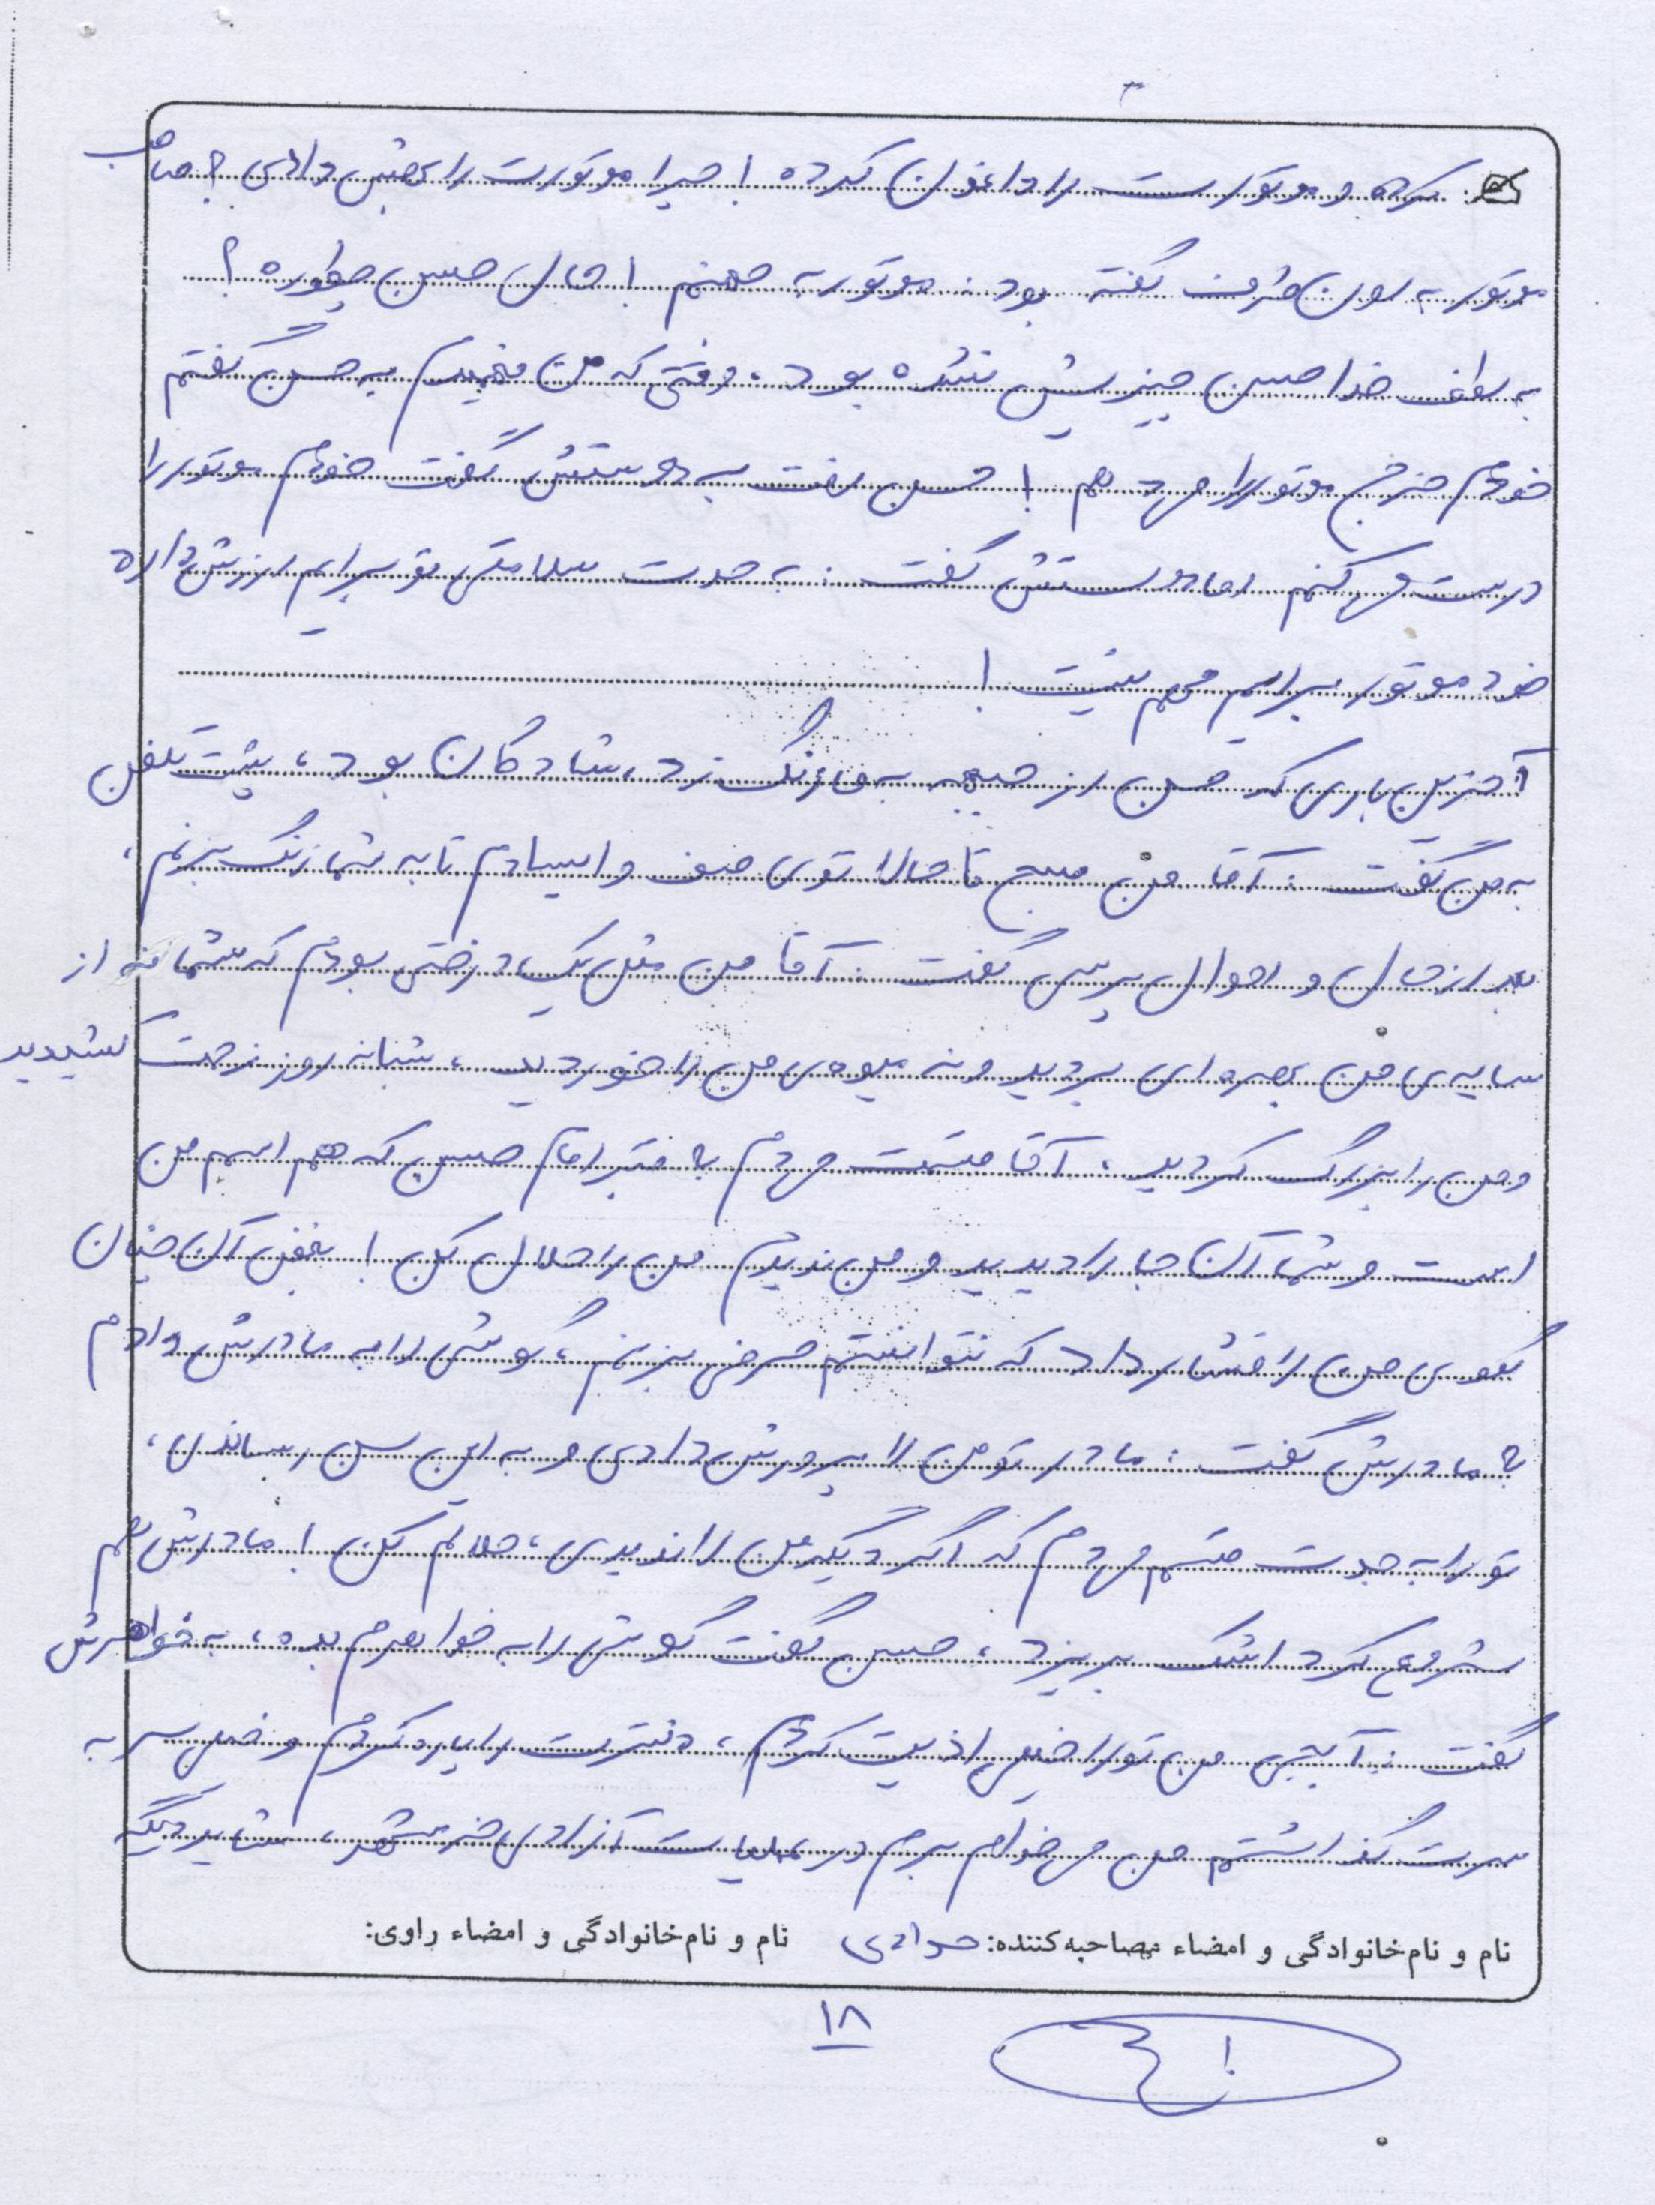 کرده و موتورت را داغون کرده! چرا موتورت را بهش دادی؟ صاحب
موتور به اون طرف گفته بود: موتور به جهنم! حال حسن چطوره؟
به لطف خدا حسن چیزیش نشده بود، وقتی که من فهمیدم به حسن گفتم
خودم خرج موتور را می‌دهم! حسن رفت به دوستش گفت خودم موتور را
درست می‌کنم اما دوستش گفت: به جدت سلامتی تو برایم ارزش داره
خود موتور برایم مهم نیست!
آخرین باری که حسن از جبهه به ما زنگ زد، شادگان بود، پشت تلفن
به من گفت: آقا من صبح تا حالا توی صف وایسادم تا به شما زنگ بزنم،
بعد از حال و احوال پرسی گفت: آقا من مثل یک درختی بودم که شما نه از
سایه‌ی من بهره‌ای بردید و نه میوه‌ی من را خوردید، شبانه روز زحمت کشیدید
و من را بزرگ کردید، آقا قسمت می‌دم به قبر امام حسین که هم اسم من
است و شما آن جا را دیدید و من ندیدم من را حلال کن! بغض آن چنان
گلوی من را فشار داد که نتوانستم حرفی بزنم، گوشی را به مادرش دادم
به مادرش گفت: مادر تو من را پرورش دادی و به این سن رساندی،
تو را به جدت قسم می‌دم که اگر دیگر من را ندیدی، حلالم کن! مادرش هم
شروع کرد اشک بریزد، حسن گفت گوشی را به خواهرم بده، به خواهرش
گفت: آبجی من تو را خیلی اذیت کردم، دفترت را پاره کردم و خیلی سر به
سرت گذاشتم من می‌خوام برم در عملیات آزادی خرمشهر، شاید دیگه
نام و نام‌خانوادگی و امضاء مصاحبه‌کننده: جوادی نام و نام‌خانوادگی و امضاء راوی:
۱۸